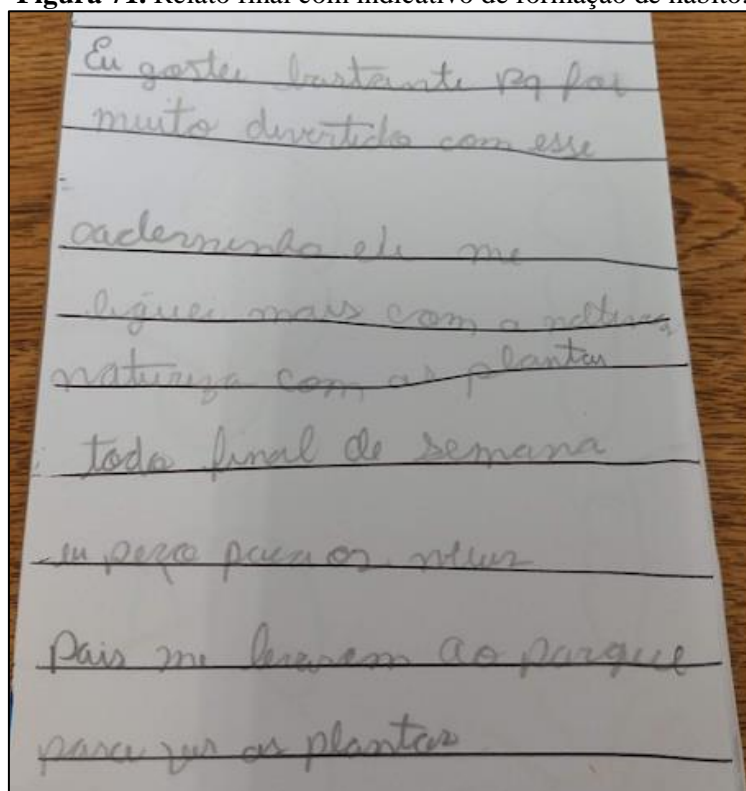 Figura 71. Relato final com indicativo de formação de hábito.
Eu gostei bastante pq foi
muito divertido com esse
caderninho ele me
liguei mais com a
natureza com as plantas
todo final de semana
eu peço para os meus
pais me levarem ao parque
para ver as plantas